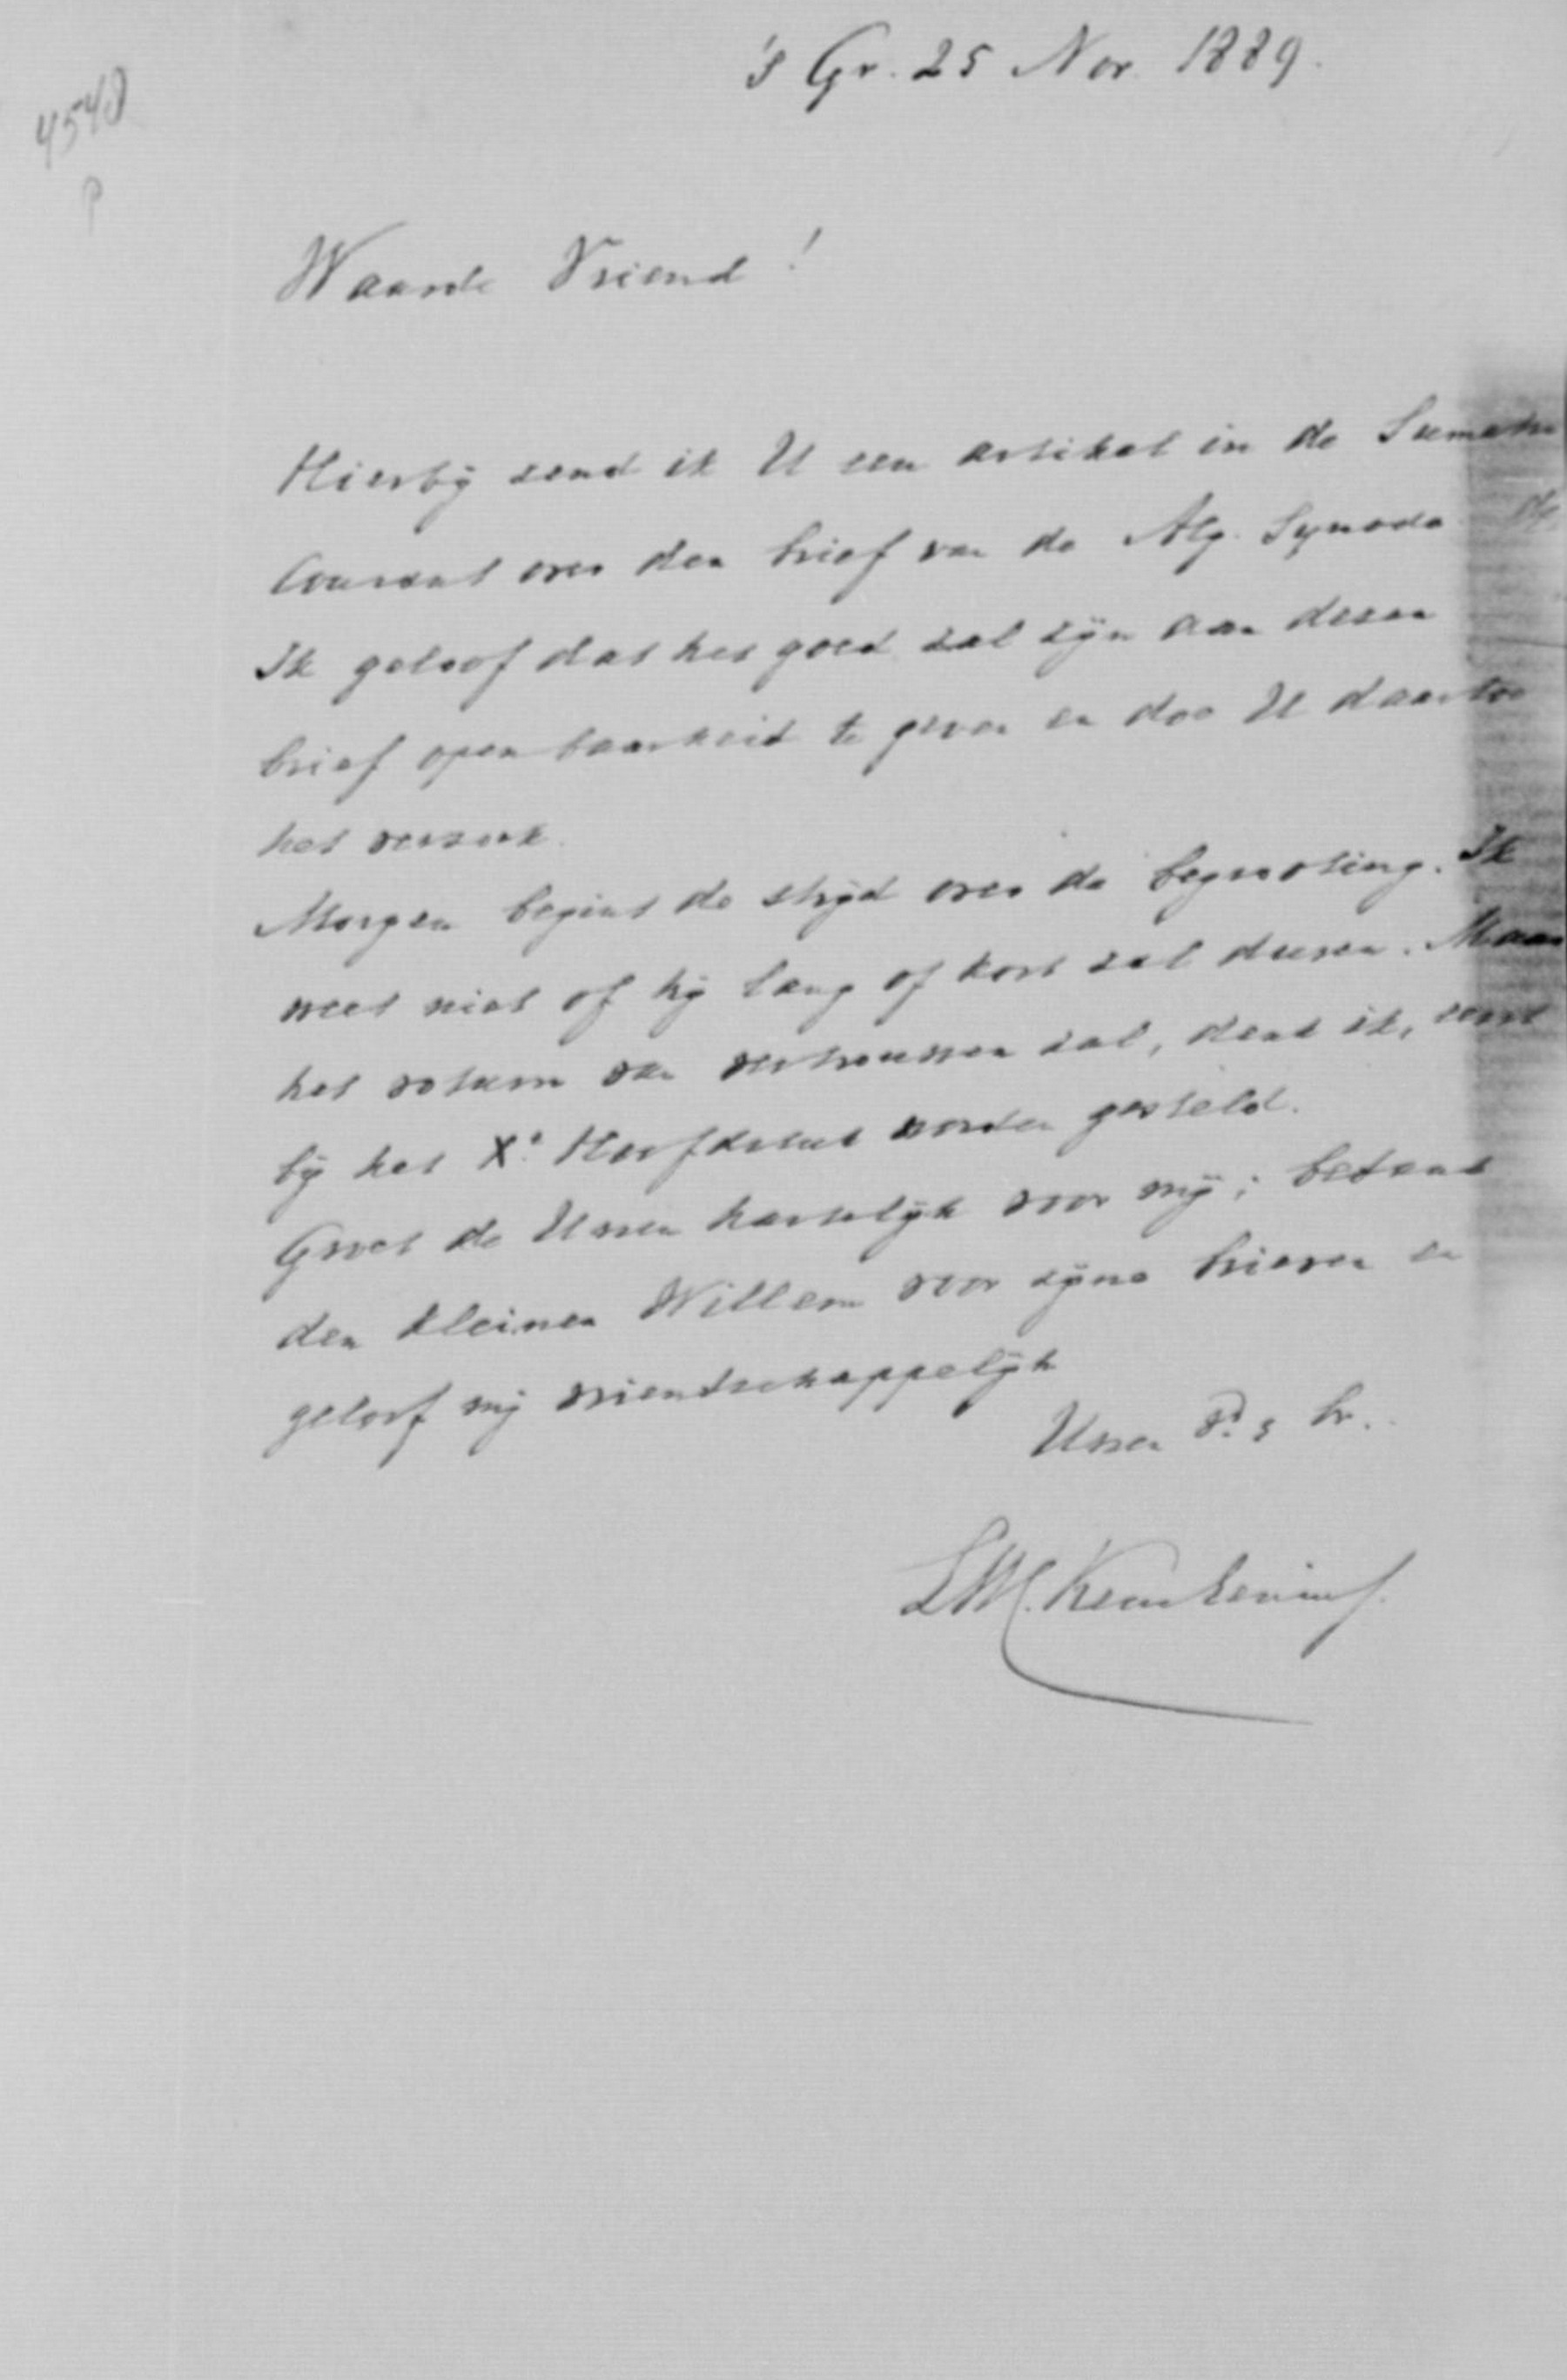 's Gr. 25 Nov. 1889.
4540
P
Waarde Vriend!
Hierbij zend ik U een artikel in de Sumatra
Courant over den brief van de Alg. Synode
Ik geloof dat het goed zal zijn aan dezen
brief openbaarheid te geven en doe U daartoe
het verzoek.
Morgen begint de strijd over de begrooting. Ik
weet niet of hij lang of kort zal duren. Maar
het votum van vertrouwen zal, denk ik, eerst
bij het Xe Hoofdstuk worden gesteld.
Groet de Uwen hartelijk voor mij; bedank
den kleinen Willem voor zijne brieven en
geloof mij vriendschappelijk
Uwen
L.W.C. Keuchenius.